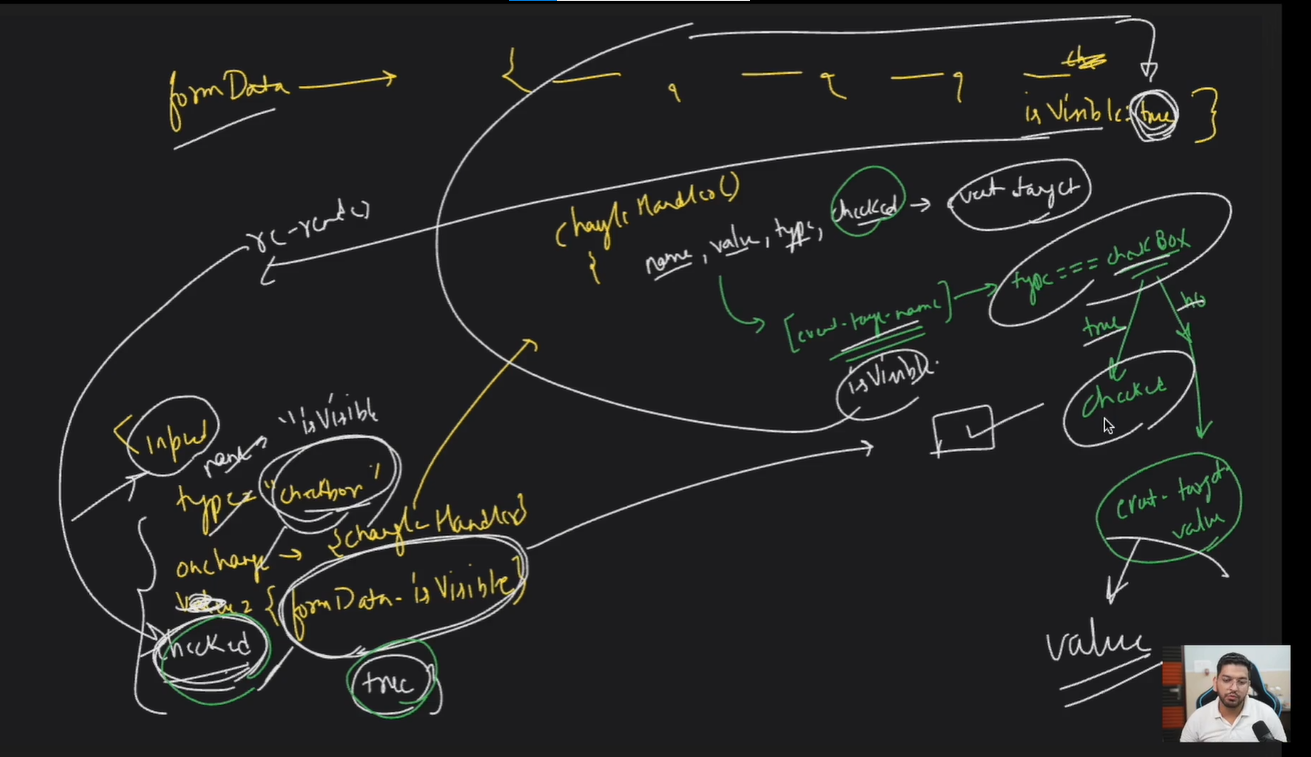 formData → { , , , isVisible: true }
changeHandler()
{
name, value, type, checked → event.target
re-render
[event.target.name] → type === checkBox
true no
isVisible
checked
event.target.value
value
< input
name "isVisible
type= "checkbox"
onchange → {changeHandler}
= {formData.isVisible}
checked
true